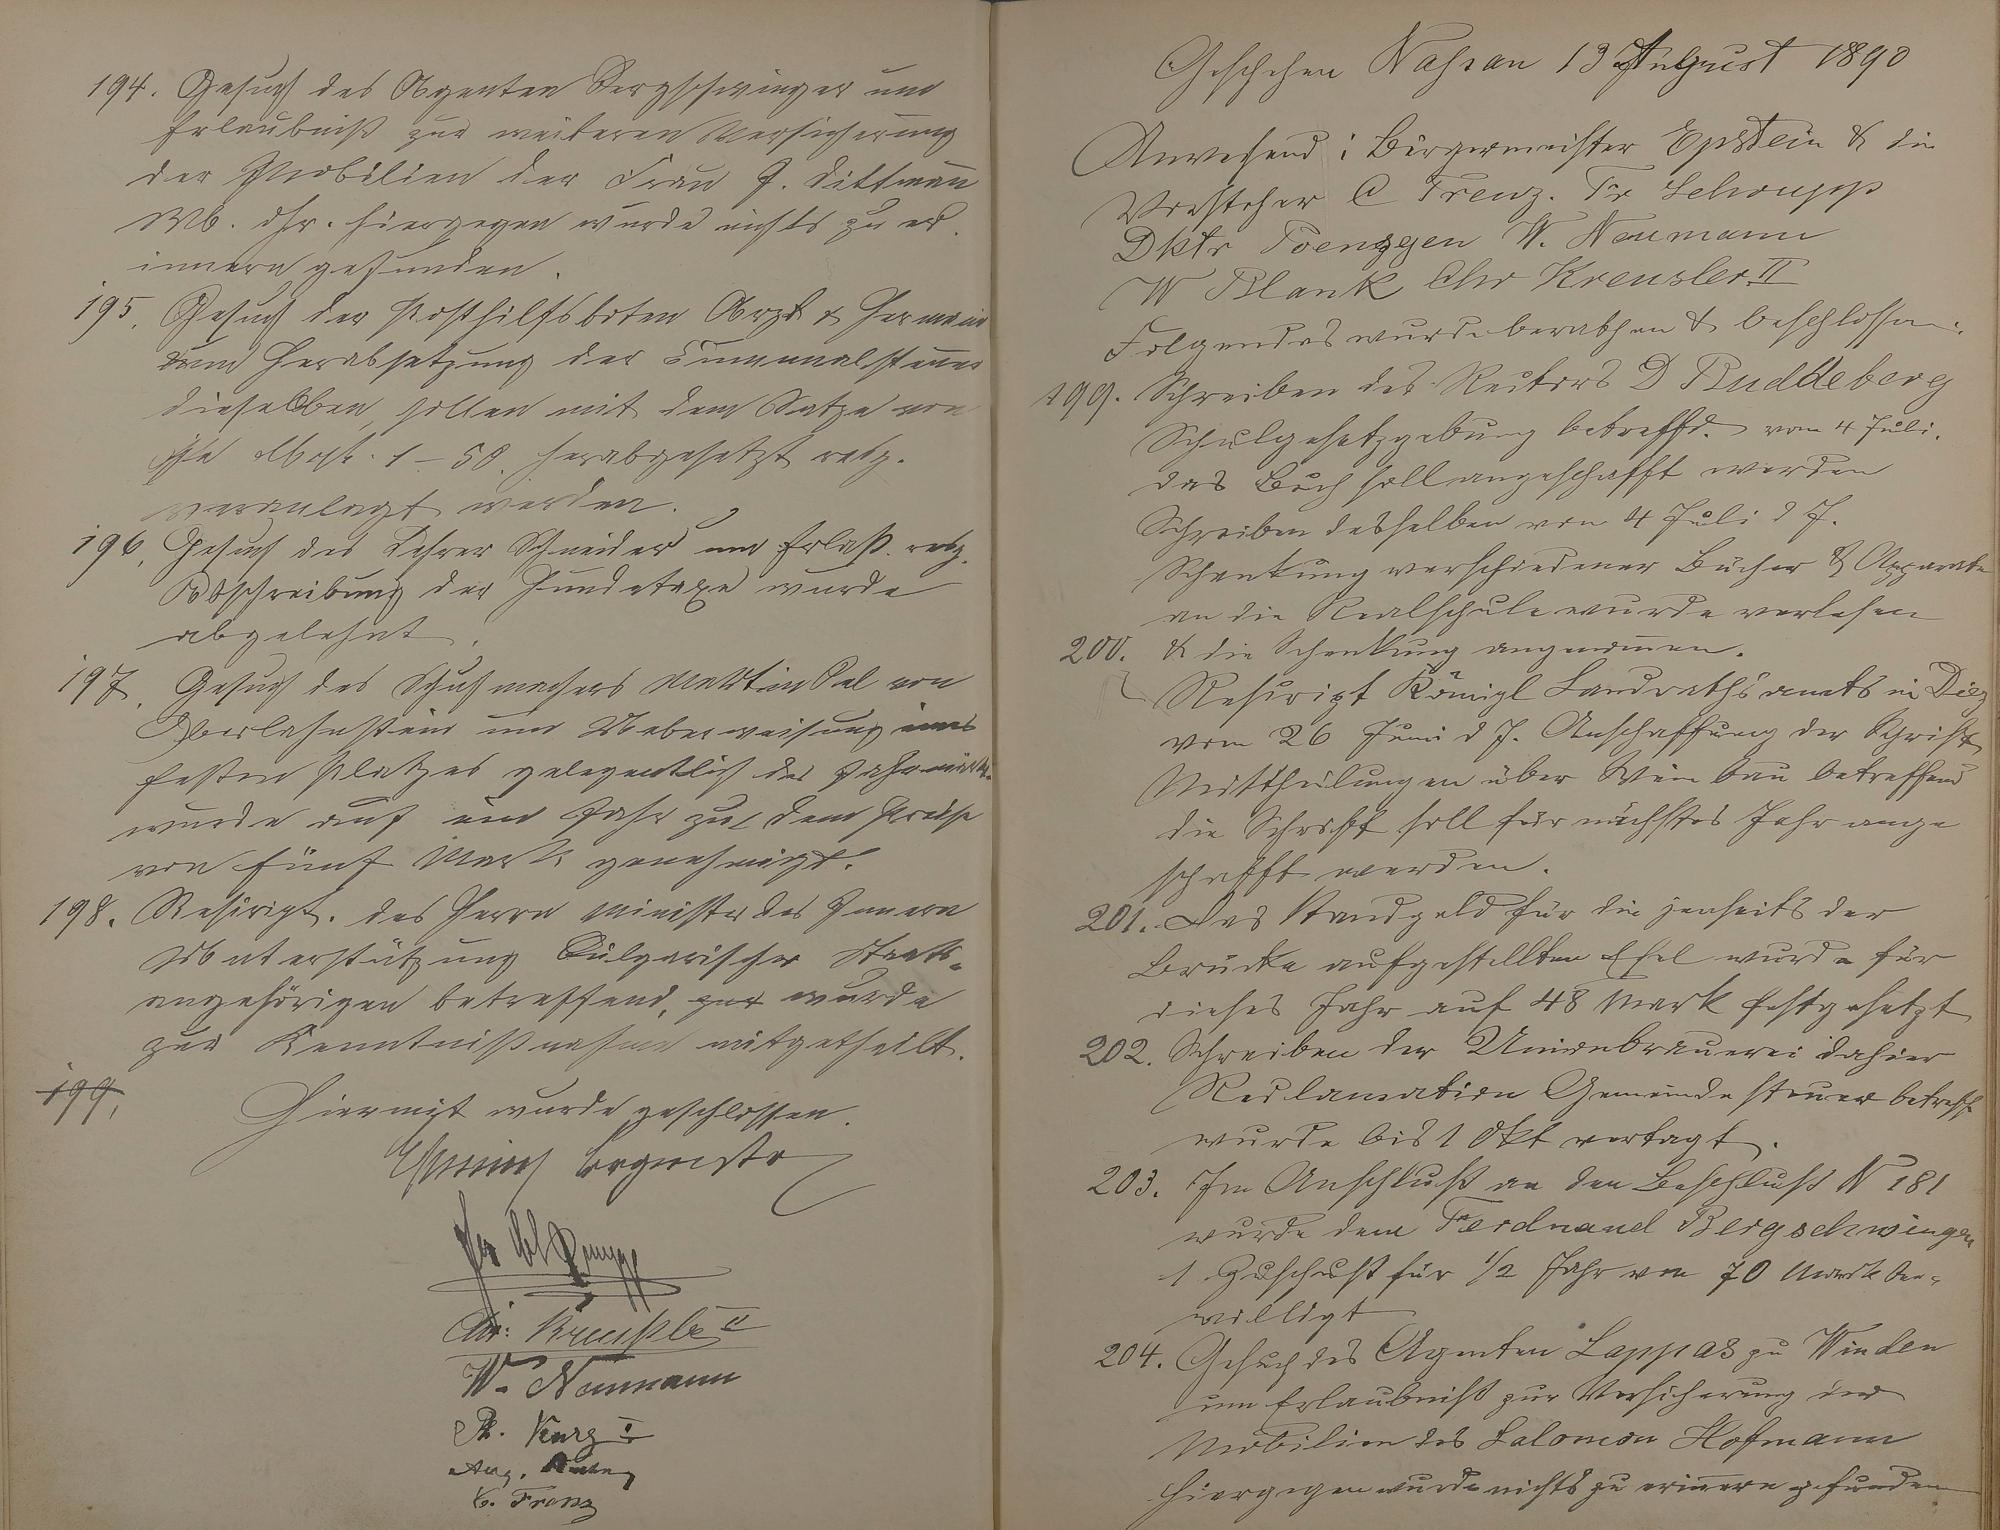 194. Gesuch des Agenten Bergschwinger um
Erlaubniß zur weiteren Versicherung
der Mobilien der Frau J. Dittmann
Wb. dhr. hiergegen wurde nichts zu er-
innern gefunden.
195. Gesuch der Posthilfsboten Arzt & Hermann
um Herabsetzung der Communalsteuer
dieselben, sollen mit dem Satze von
je Mark 1-50. herabgesetzt resp.
veranlagt werden.
196. Gesuch des Lehrer Schneider um Erlaß resp.
Abschreibung der Hundetaxe wurde
abgelehnt.
197. Gesuch des Schuhmachers Martin Sal von
Oberlahnstein um Ueberweisung eines
festen Platzes gelegentlich der Jahrmärkte
wurde auf ein Jahr zu dem Preise
von fünf Mark genehmigt.
198. Rescript. des Herrn Minister des Innern
Unterstützung Bulgarischer Staats-
angehörigen betreffend, wurde
zur Kenntnißnahme mitgetheilt.
199,
Hiermit wurde geschlossen.
Chr: Kreusler II
W. Naumann
Kurz I
Aug.
C. Trenz
Geschehen Nassau 13 August 1890
Anwesend: Bürgermeister Epstein & die
Vorsteher C Trenz. Fr Schrupp
Dktr Poensgen W. Naumann
W Blank Chr Kreusler II
Folgendes wurde berathen & beschlossen:
199. Schreiben des Rectors D Buddeberg
Schulgesetzgebung betreffd. vom 4 Juli.
das Buch soll angeschafft werden
Schreiben desselben vom 4 Juli d J.
Schenkung verschiedener Bücher & Apparate
an die Realschule wurde verlesen
200. & die Schenkung angenommen.
Rescript Königl Landrathsamts in Diez
vom 26 Juni d J. Anschaffung der Schrift
Mittheilungen über Weinbau betreffend
die Schrift soll für nächstes Jahr ange
schafft werden.
201. Das Standgeld für die jenseits der
Brücke aufgestellten Esel wurde für
dieses Jahr auf 48 Mark festgesetzt
202. Schreiben der Unionbrauerei dahier
Reclamation Gemeindesteuer betreff
wurde bis 1 Okt vertagt.
203. Im Anschluß an den Beschluß N 181
wurde dem Ferdnand Bergschwinger
1 Zuschuß für 1/2 Jahr von 70 Mark be-
willigt
204. Gesuch des Agenten Lappas zu Winden
um Erlaubniß zur Versicherung der
Mobilien des Salomon Hofmann
hiergegen wurde nichts zu erinnern gefunden